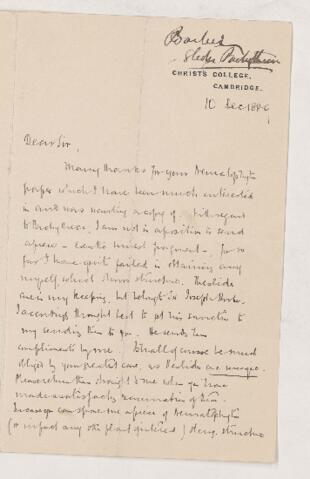 Barber
Slides Pachytheca
CHRIST'S COLLEGE,
CAMBRIDGE.
10 Dec 1889
Dear Sir,
Many thanks for your Nematophyton
paper which I have been much interested
in and was wanting a copy of. With regard
to Pachytheca, I am not in a position to send
a piece
far I have quite failed in obtaining any
myself which shows structure. The slides
are in my keeping, but belong to Sir Joseph Hooker.
I accordingly thought best to ask his sanction to
my sending them to you. He sends his
compliments by me. I shall of course be much
obliged by your greatest care, as the slides are unique.
Please return them straight to me when you have
made a satisfactory examination of them.
In case you can spare me a piece of Nematophyton
(or in fact any other plant you have) showing structure